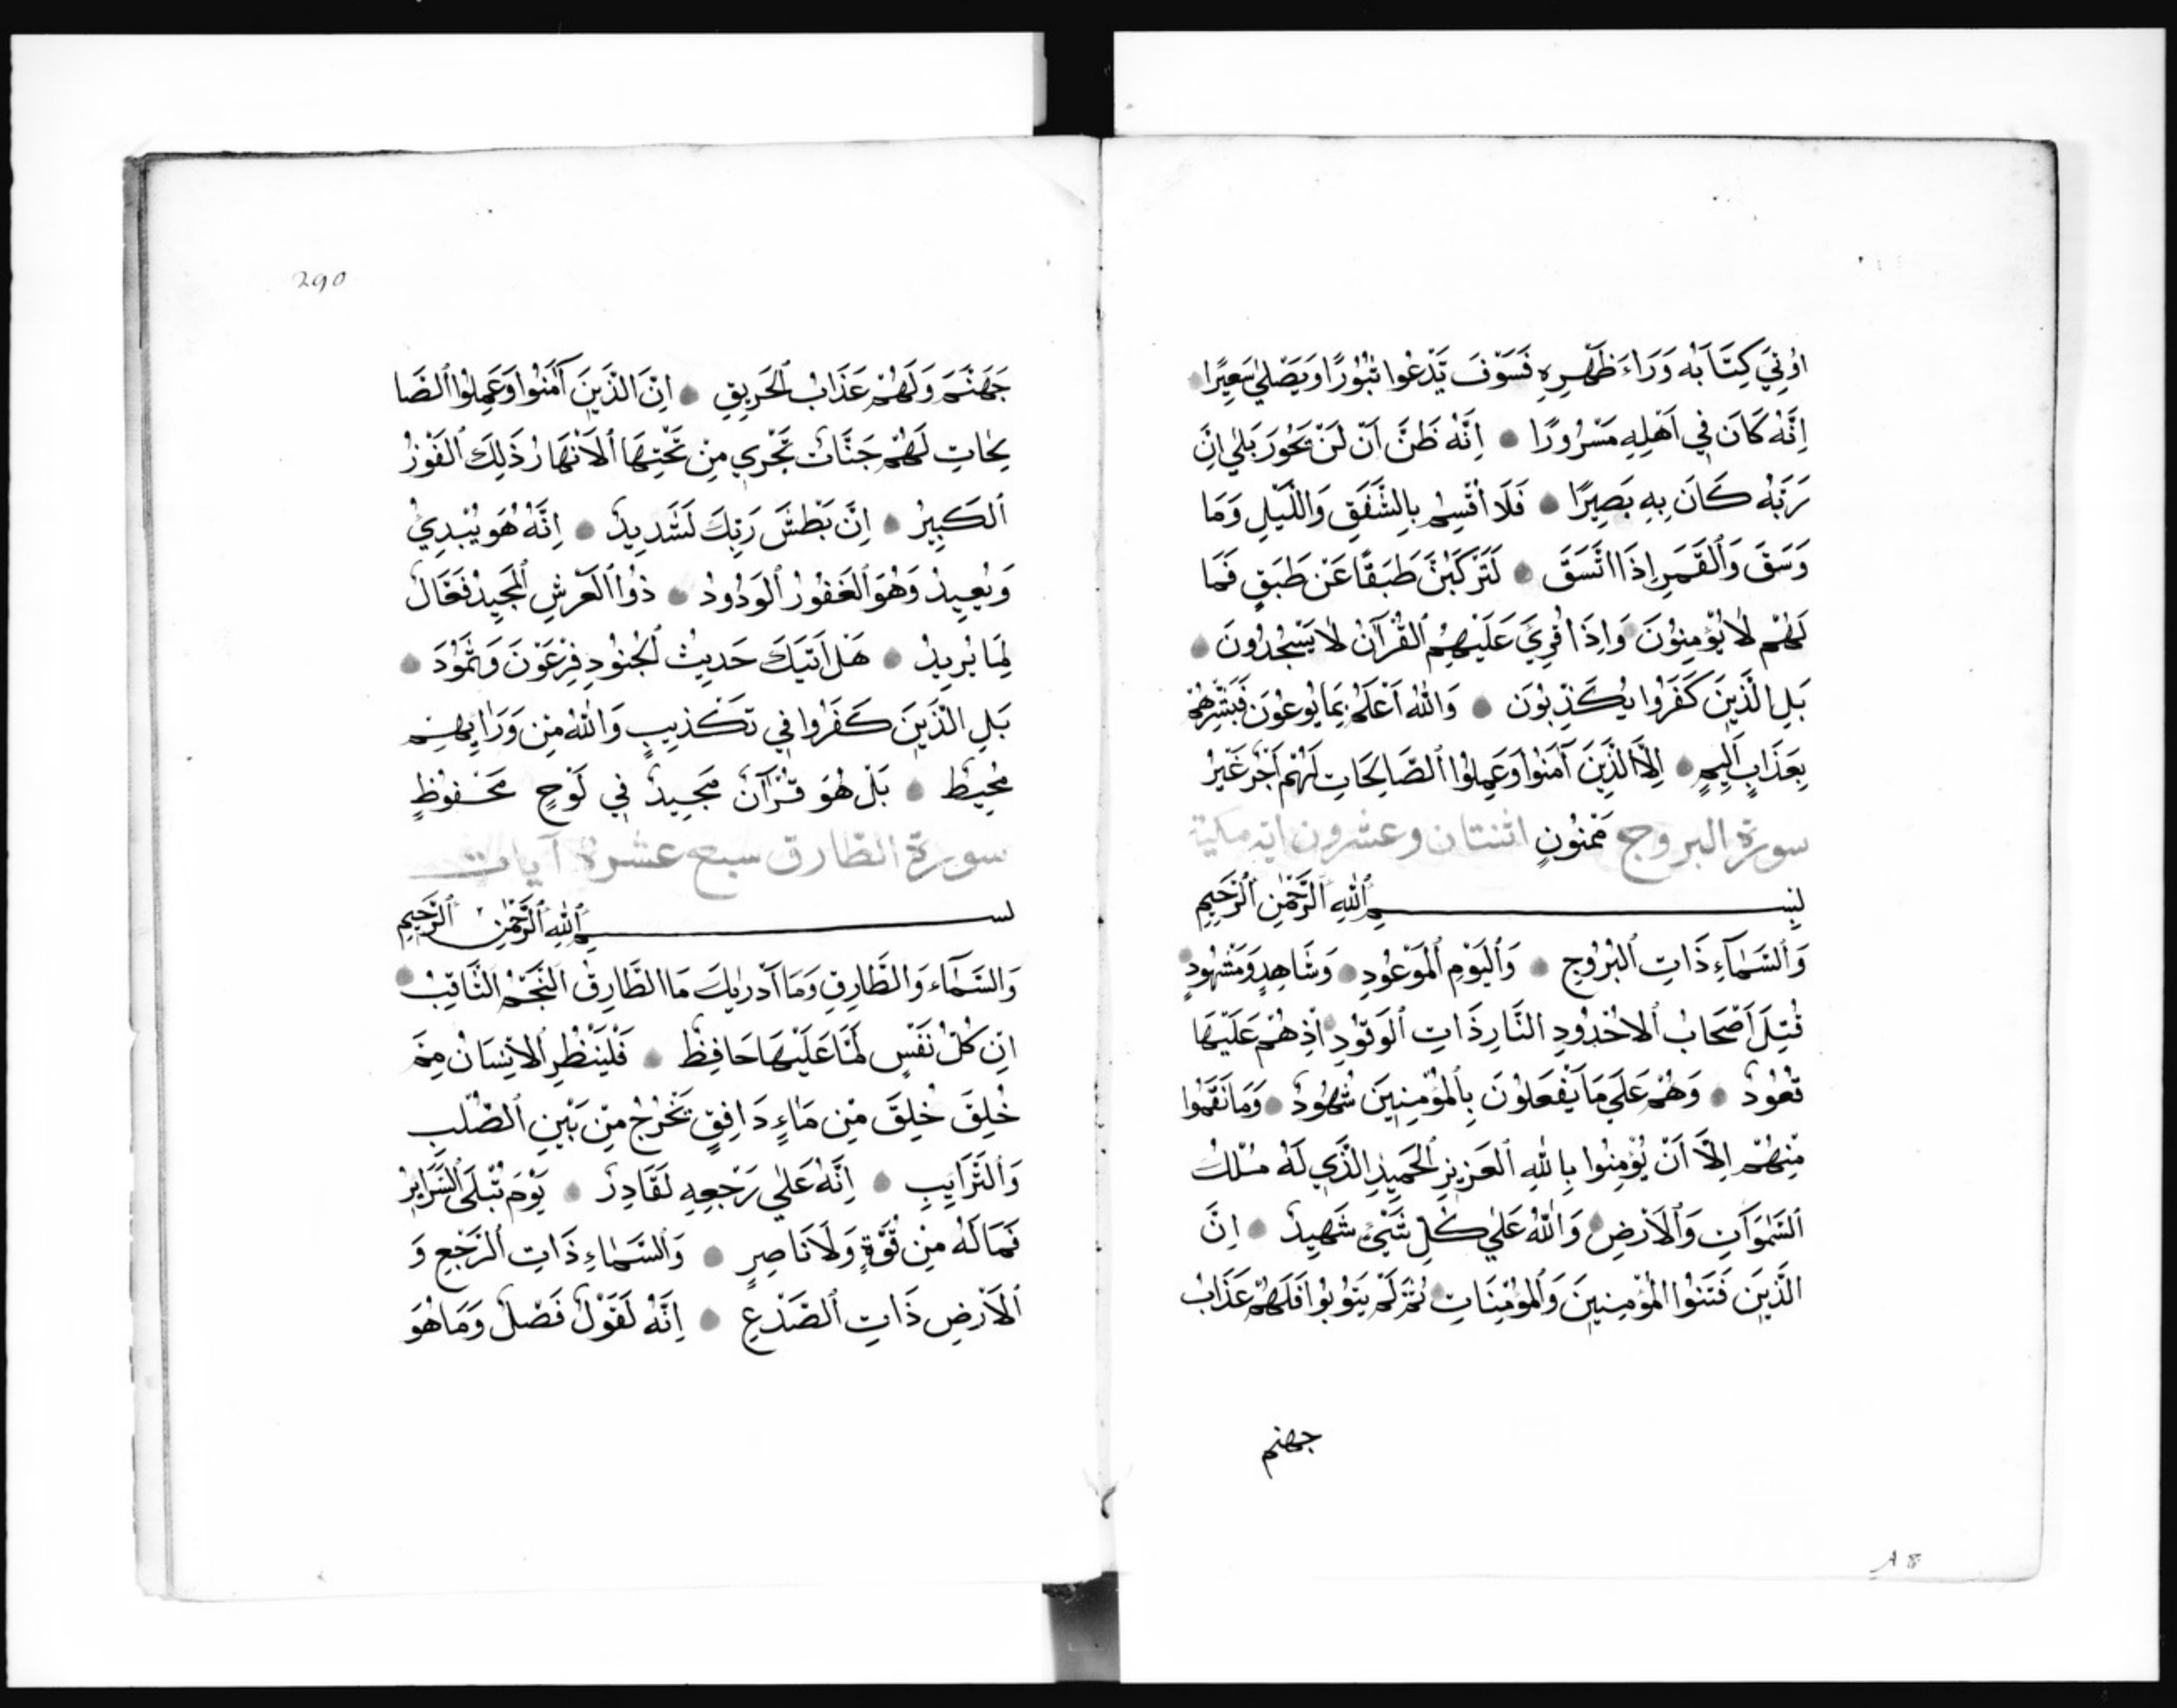 اُوتِيَ كِتَابَهُ وَرَاءَ ظَهْرِهِ فَسَوْفَ يَدْعُوا ثُبُورًا وَيَصْلٰي سَعِيرًا
اِنَّهُ كَانَ فِي اَهْلِهِ مَسْرُورًا ۞ اِنَّهُ ظَنَّ اَنْ لَنْ يَحُورَ بَلٰي اِنَّ
رَبَّهُ كَانَ بِهِ بَصِيرًا ۞ فَلَا اُقْسِمُ بِالشَّفَقِ وَاللَّيْلِ وَمَا
وَسَقَ وَالْقَمَرِ اِذَا اتَّسَقَ ۞ لَتَرْكَبُنَّ طَبَقًا عَنْ طَبَقٍ فَمَا
لَهُمْ لَا يُؤْمِنُونَ ۞ وَاِذَا قُرِيَ عَلَيْهِمُ الْقُرْآنُ لَا يَسْجُدُونَ ۞
بَلِ الَّذِينَ كَفَرُوا يُكَذِّبُونَ ۞ وَاللّٰهُ اَعْلَمُ بِمَا يُوعُونَ فَبَشِّرْهُمْ
بِعَذَابٍ اَلِيمٍ ۞ اِلَّا الَّذِينَ آمَنُوا وَعَمِلُوا الصَّالِحَاتِ لَهُمْ اَجْرٌ غَيْرُ
سورة البروج مَمْنُونٍ اثنتان وعشرون اية مكية
بِسْمِ اللّٰهِ الرَّحْمٰنِ الرَّحِيمِ
وَالسَّمَآءِ ذَاتِ الْبُرُوجِ ۞ وَالْيَوْمِ الْمَوْعُودِ ۞ وَشَاهِدٍ وَمَشْهُودٍ ۞
قُتِلَ اَصْحَابُ الْاُخْدُودِ النَّارِ ذَاتِ الْوَقُودِ ۞ اِذْ هُمْ عَلَيْهَا
قُعُودٌ ۞ وَهُمْ عَلَي مَا يَفْعَلُونَ بِالْمُؤْمِنِينَ شُهُودٌ ۞ وَمَا نَقَمُوا
مِنْهُمْ اِلَّا اَنْ يُؤْمِنُوا بِاللّٰهِ الْعَزِيزِ الْحَمِيدِ الَّذِي لَهُ مُلْكُ
السَّمٰوَاتِ وَالْاَرْضِ ۞ وَاللّٰهُ عَلٰي كُلِّ شَيْئٍ شَهِيدٌ ۞ اِنَّ
الَّذِينَ فَتَنُوا الْمُؤْمِنِينَ وَالْمُؤْمِنَاتِ ۞ ثُمَّ لَمْ يَتُوبُوا فَلَهُمْ عَذَابُ
جهنم
A 8
290
جَهَنَّمَ وَلَهُمْ عَذَابُ الْحَرِيقِ ۞ اِنَّ الَّذِينَ آمَنُوا وَعَمِلُوا الصَّا
لِحَاتِ لَهُمْ جَنَّاتٌ تَجْرِي مِنْ تَحْتِهَا الْاَنْهَارُ ذٰلِكَ الْفَوْزُ
الْكَبِيرُ ۞ اِنَّ بَطْشَ رَبِّكَ لَشَدِيدٌ ۞ اِنَّهُ هُوَ يُبْدِئُ
وَيُعِيدُ وَهُوَ الْغَفُورُ الْوَدُودُ ۞ ذُوا الْعَرْشِ الْمَجِيدُ فَعَّالٌ
لِمَا يُرِيدُ ۞ هَلْ اَتٰيكَ حَدِيثُ الْجُنُودِ فِرْعَوْنَ وَثَمُودَ ۞
بَلِ الَّذِينَ كَفَرُوا فِي تَكْذِيبٍ وَاللّٰهُ مِنْ وَرَايِهِمْ
مُحِيطٌ ۞ بَلْ هُوَ قُرْآنٌ مَجِيدٌ فِي لَوْحٍ مَحْفُوظٍ
سورة الطارق سبع عشرة آيات
بسم اللّٰهِ الرَّحْمٰنِ الرَّحِيمِ
وَالسَّمَآءِ وَالطَّارِقِ وَمَا اَدْرٰيكَ مَا الطَّارِقُ النَّجْمُ الثَّاقِبُ ۞
اِنْ كُلُّ نَفْسٍ لَمَّا عَلَيْهَا حَافِظٌ ۞ فَلْيَنْظُرِ الْاِنْسَانُ مِمَّ
خُلِقَ خُلِقَ مِنْ مَاءٍ دَافِقٍ يَخْرُجُ مِنْ بَيْنِ الصُّلْبِ
وَالتَّرَايِبِ ۞ اِنَّهُ عَلٰي رَجْعِهِ لَقَادِرٌ ۞ يَوْمَ تُبْلَي السَّرَايِرُ
فَمَا لَهُ مِنْ قُوَّةٍ وَلَا نَاصِرٍ ۞ وَالسَّمَاءِ ذَاتِ الرَّجْعِ وَ
الْاَرْضِ ذَاتِ الصَّدْعِ ۞ اِنَّهُ لَقَوْلٌ فَصْلٌ وَمَا هُوَ